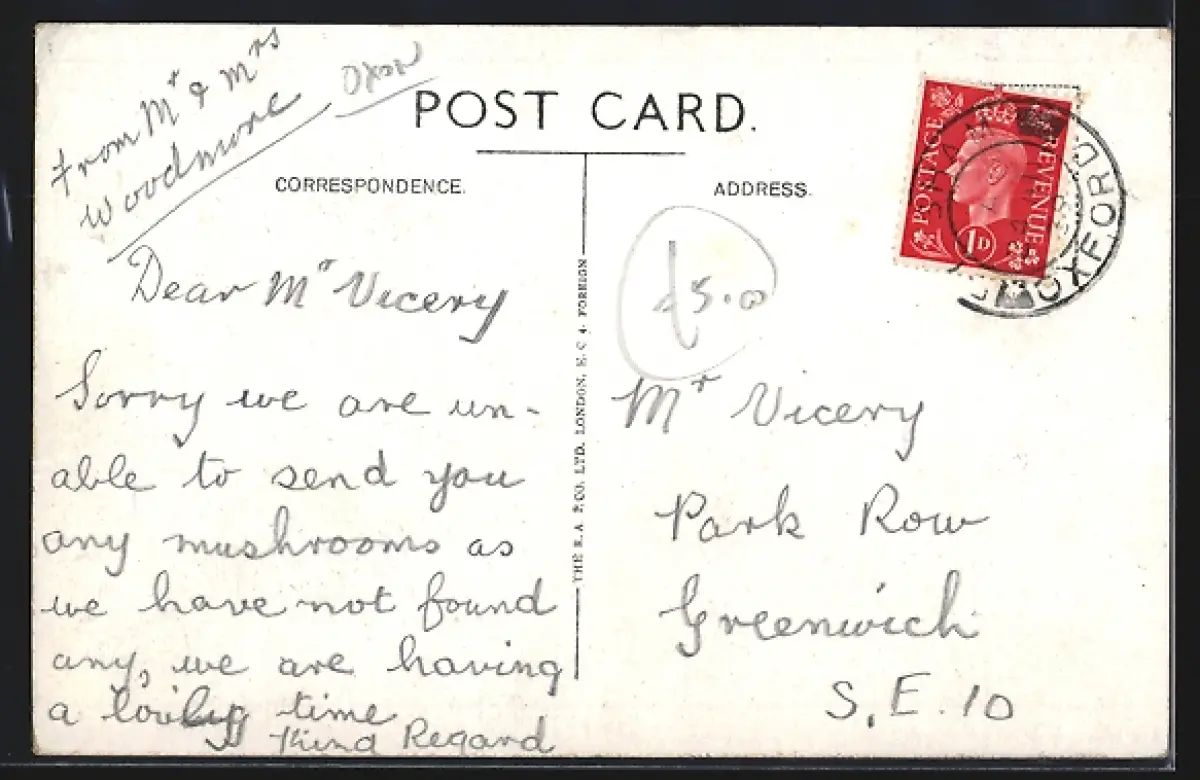 From Mr & Mrs
Woodmore
Oxon
POST CARD.
CORRESPONDENCE.
ADDRESS.
POSTAGE REVENUE
1D
OXFORD
Dear Mr Vicery
Sorry we are un-
able to send you
any mushrooms as
we have not found
any, we are having
a lovely time
Kind Regard
£5.0
Mr Vicery
Park Row
Greenwich
S.E.10
THE R.A. P.CO. LTD. LONDON, E.C 4. FOREIGN